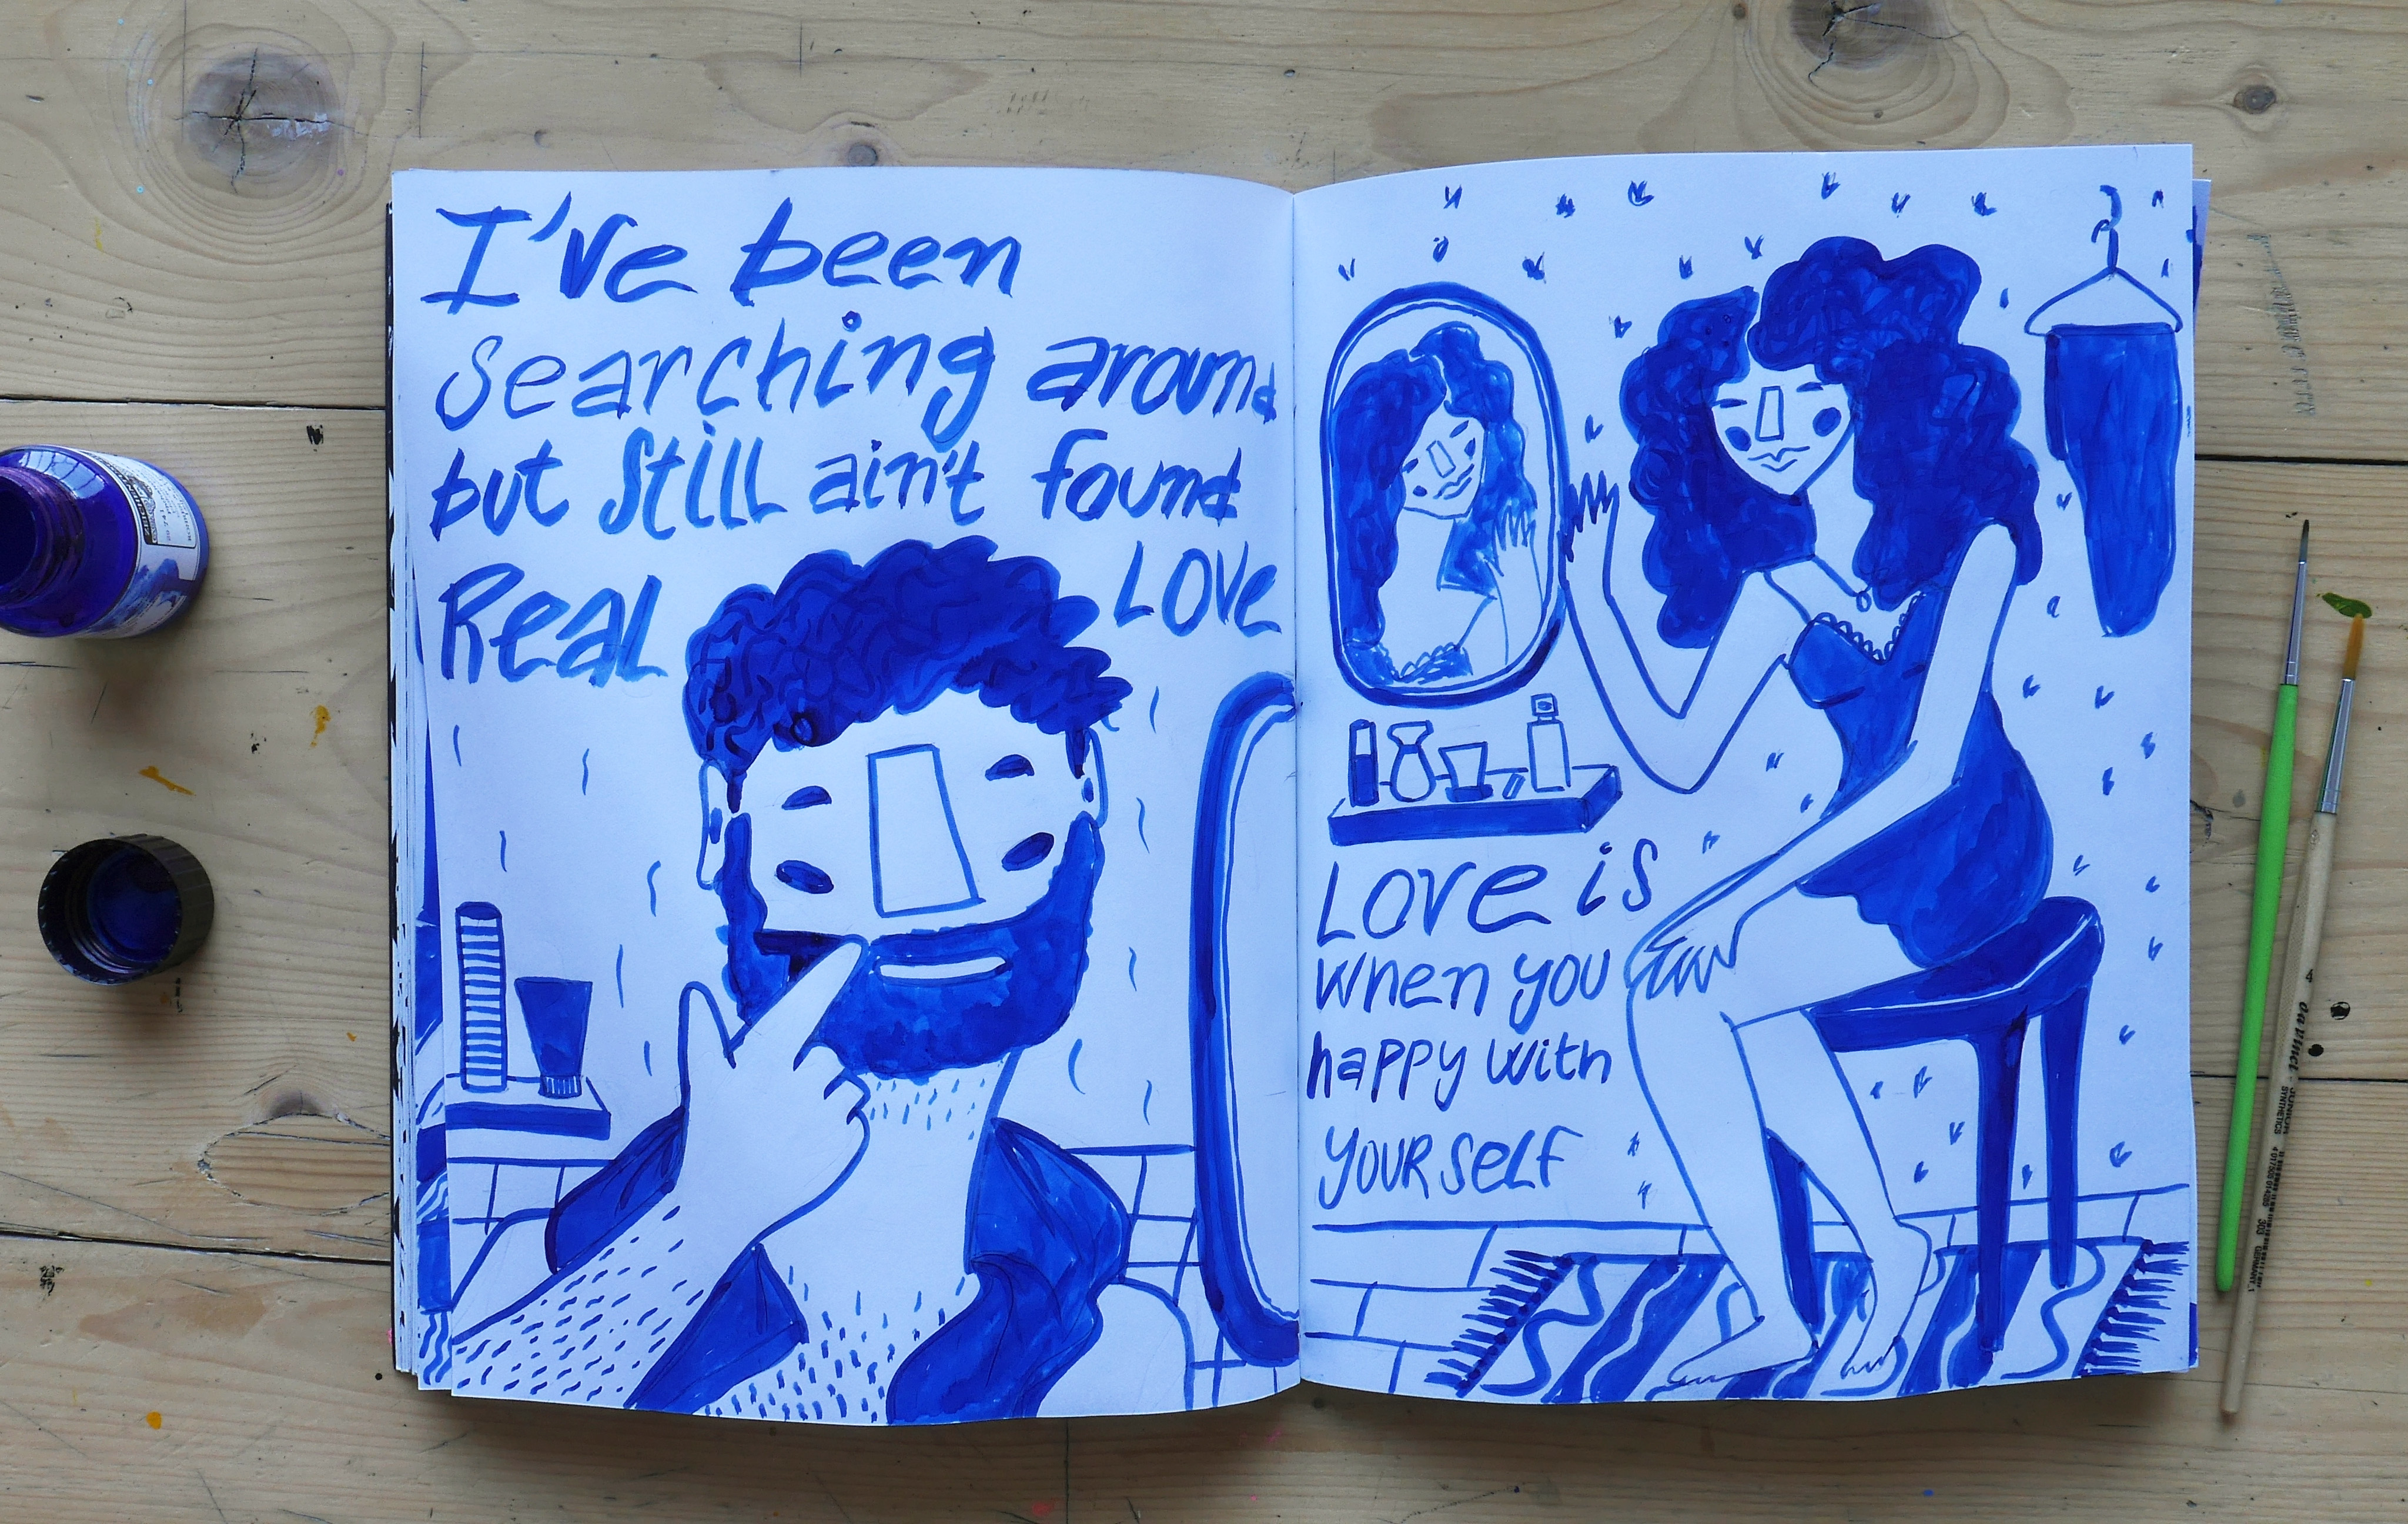 I've been
searching around
but still ain't found
Real LOVE
LOVE is
when you
happy with
YOURSELF
4 da Vinci JUNIOR
SYNTHETICS
303 GERMANY